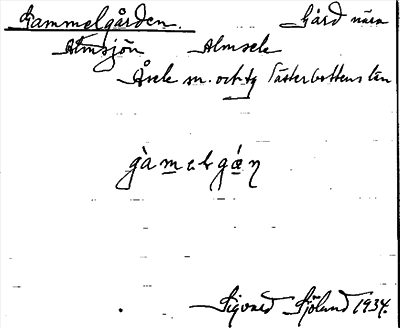 Gammelgården. Gård nära
Almsjön Almsele
Åsele m. och tg Västerbottens län
gàmelgǻn
Sigvard Sjölund 1934.